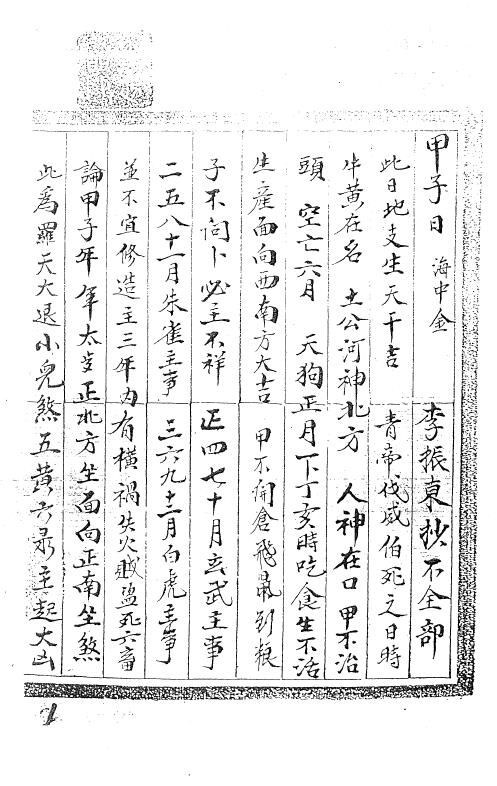 甲子日 海中金 李振東抄不全部
此日地支生天干吉 青帝伐咸伯死之日時
牛黄在名 土公河神北方 人神在口 甲不治
頭 空亡六月 天狗正月下丁亥時吃食生不活
生産面向西南方大吉 甲不開倉飛鼠到粮
子不问卜必主不祥 正四七十月玄武主事
二五八十一月朱雀主事 三六九十二月白虎主事
並不宜修造主三年内有橫禍失火賊盜死六畜
論甲子年 年太歲正北方坐面向正南坐煞
此爲羅天大退小兒煞五黄六录主起大凶